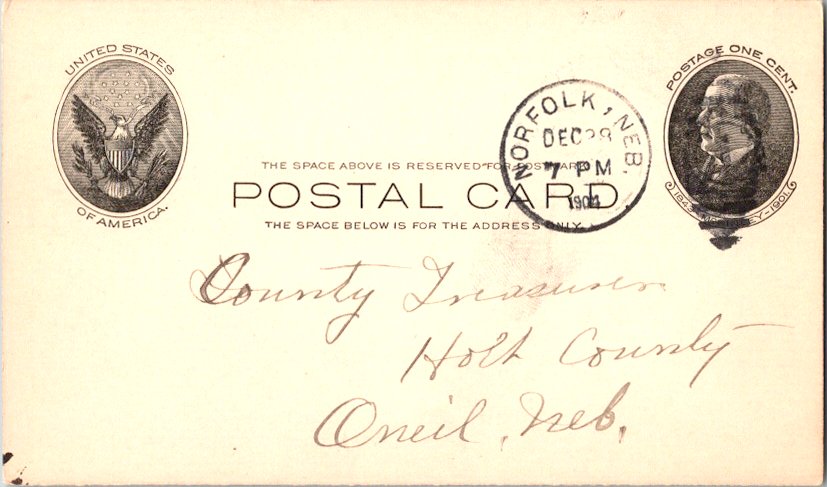 UNITED STATES
OF AMERICA.
POSTAGE ONE CENT.
1843 McKINLEY-1901.
NORFOLK, NEB.
DEC 28
7 PM
1904
THE SPACE ABOVE IS RESERVED FOR POSTMARK.
POSTAL CARD
THE SPACE BELOW IS FOR THE ADDRESS ONLY.
County Treasurer
Holt County
Oneil, Neb.